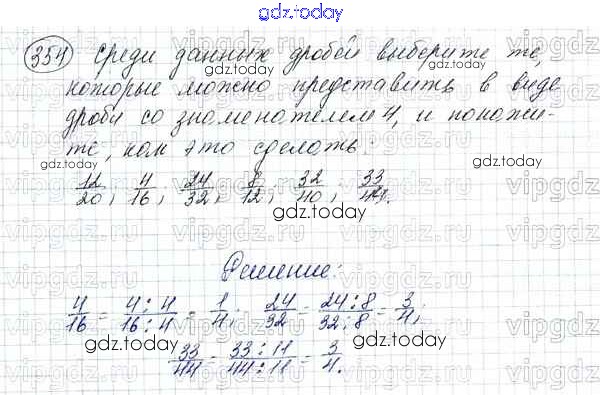 gdz.today
354 Среди данных дробей выберите те,
которые можно представить в виде
дроби со знаменателем 4, и покажи-
те, как это сделать:
12/20, 4/16, 24/32, 8/12, 32/40, 33/44.
Решение:
4/16 = 4:4/16:4 = 1/4; 24/32 = 24:8/32:8 = 3/4;
33/44 = 33:11/44:11 = 3/4.